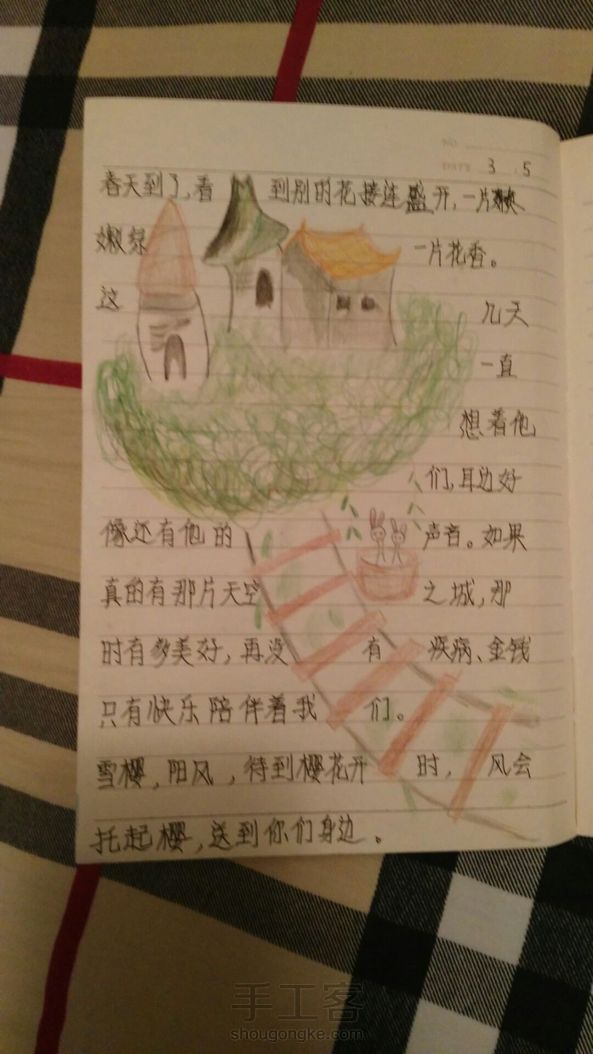 NO.
DATE 3 . 5
春天到了,看到别的花接连盛开,一片
嫩绿 一片花香。
这 几天
一直
想着他
们,耳边好
像还有他的 声音。如果
真的有那片天空 之城,那
时有多美好,再没 有 疾病、金钱
只有快乐陪伴着我 们。
雪樱,阳风,待到樱花开 时, 风会
托起樱,送到你们身边。
手工客
shougongke.com